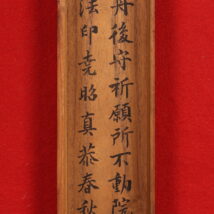 丹後守祈願所不動院
法印尭昭真恭春秋